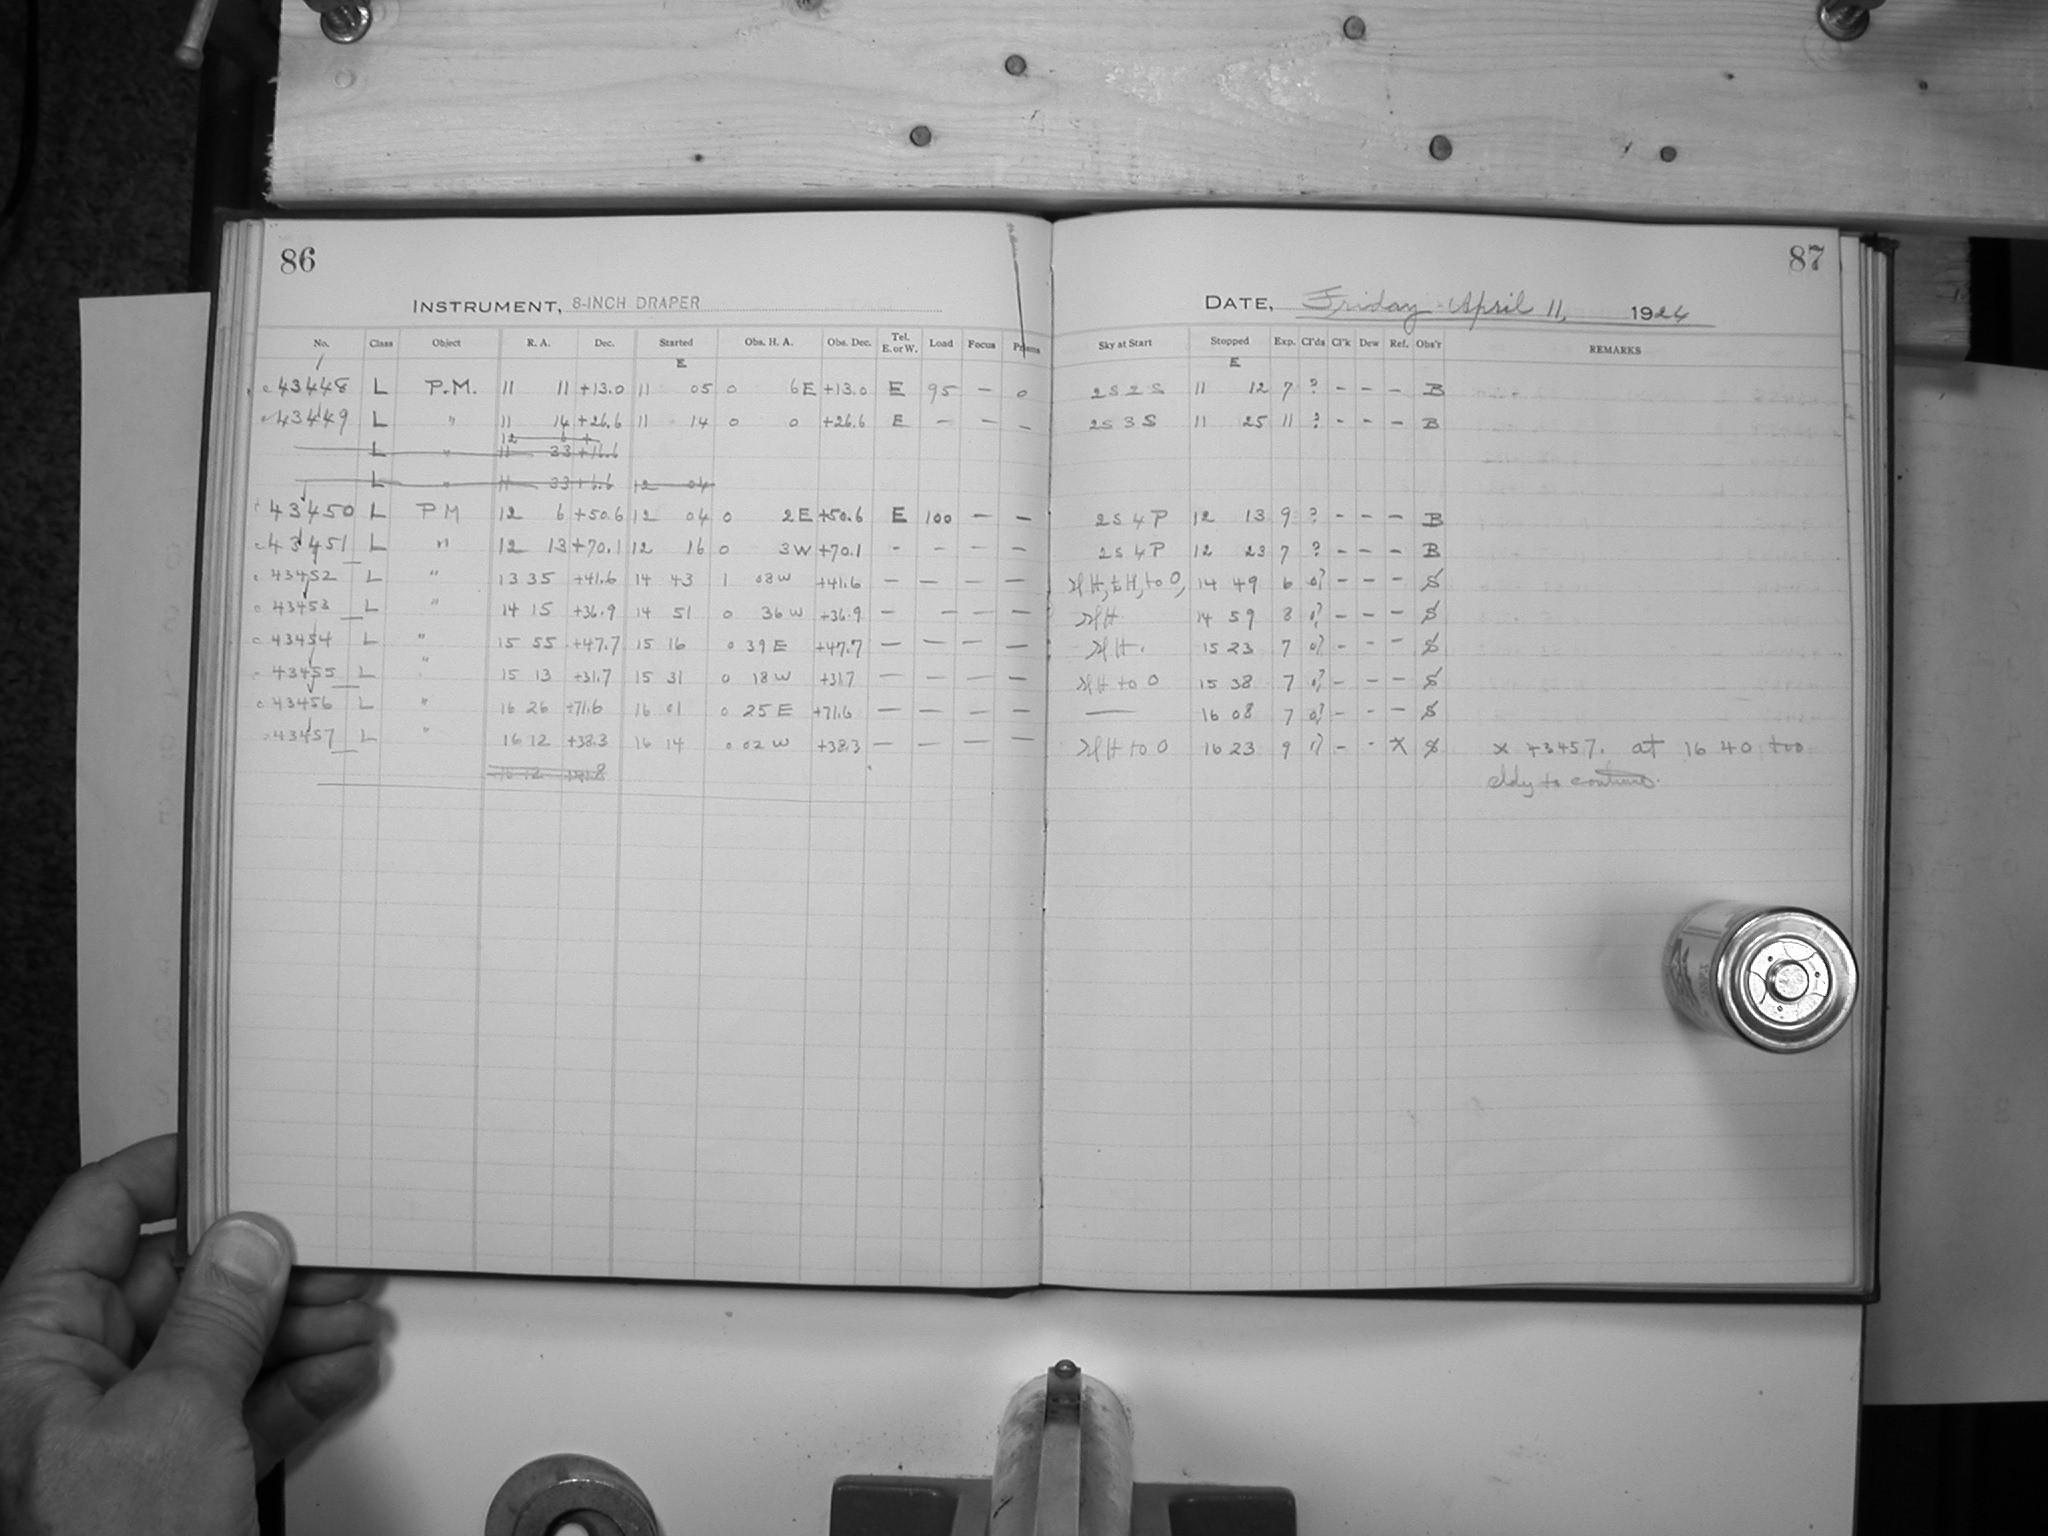 86
INSTRUMENT, 8-INCH DRAPER
No. Class Object R. A. Dec. Started Obs. H. A. Obs. Dec. Tel. E. or W. Load Focus Prisms
E
43448 L P.M. 11 11 +13.0 11 05 0 6E +13.0 E 95 — 0
43449 L " 11 14 +26.6 11 14 0 0 +26.6 E — — —
12 6 +
L " 11 33 +16.6
L " 11 33 +6.6 12 04
43450 L PM 12 6 +50.6 12 04 0 2E +50.6 E 100 — —
43451 L " 12 13 +70.1 12 16 0 3W +70.1 - - - —
43452 L " 13 35 +41.6 14 43 1 08W +41.6 — — — —
43453 L " 14 15 +36.9 14 51 0 36W +36.9 — — — —
43454 L " 15 55 +47.7 15 16 0 39E +47.7 — — — —
43455 L " 15 13 +31.7 15 31 0 18W +31.7 — — — —
43456 L " 16 26 +71.6 16 01 0 25E +71.6 — — — —
43457 L " 16 12 +38.3 16 14 0 02W +38.3 — — — —
87
DATE, Friday April 11, 1924
Sky at Start Stopped Exp. Cl'ds Cl'k Dew Ref. Obs'r REMARKS
E
2S 2S 11 12 7 ? - - - B
2S 3S 11 25 11 ? - - - B
2S 4P 12 13 9 ? - - - B
2S 4P 12 23 7 ? - - - B
to 0, 14 49 6 0? - - - S
14 59 8 0? - - - S
15 23 7 0? - - - S
to 0 15 38 7 0? - - - S
— 16 08 7 0? - - - S
to 0 16 23 9 0? - - X S x 43457. at 16 40 too
cldy to continue.